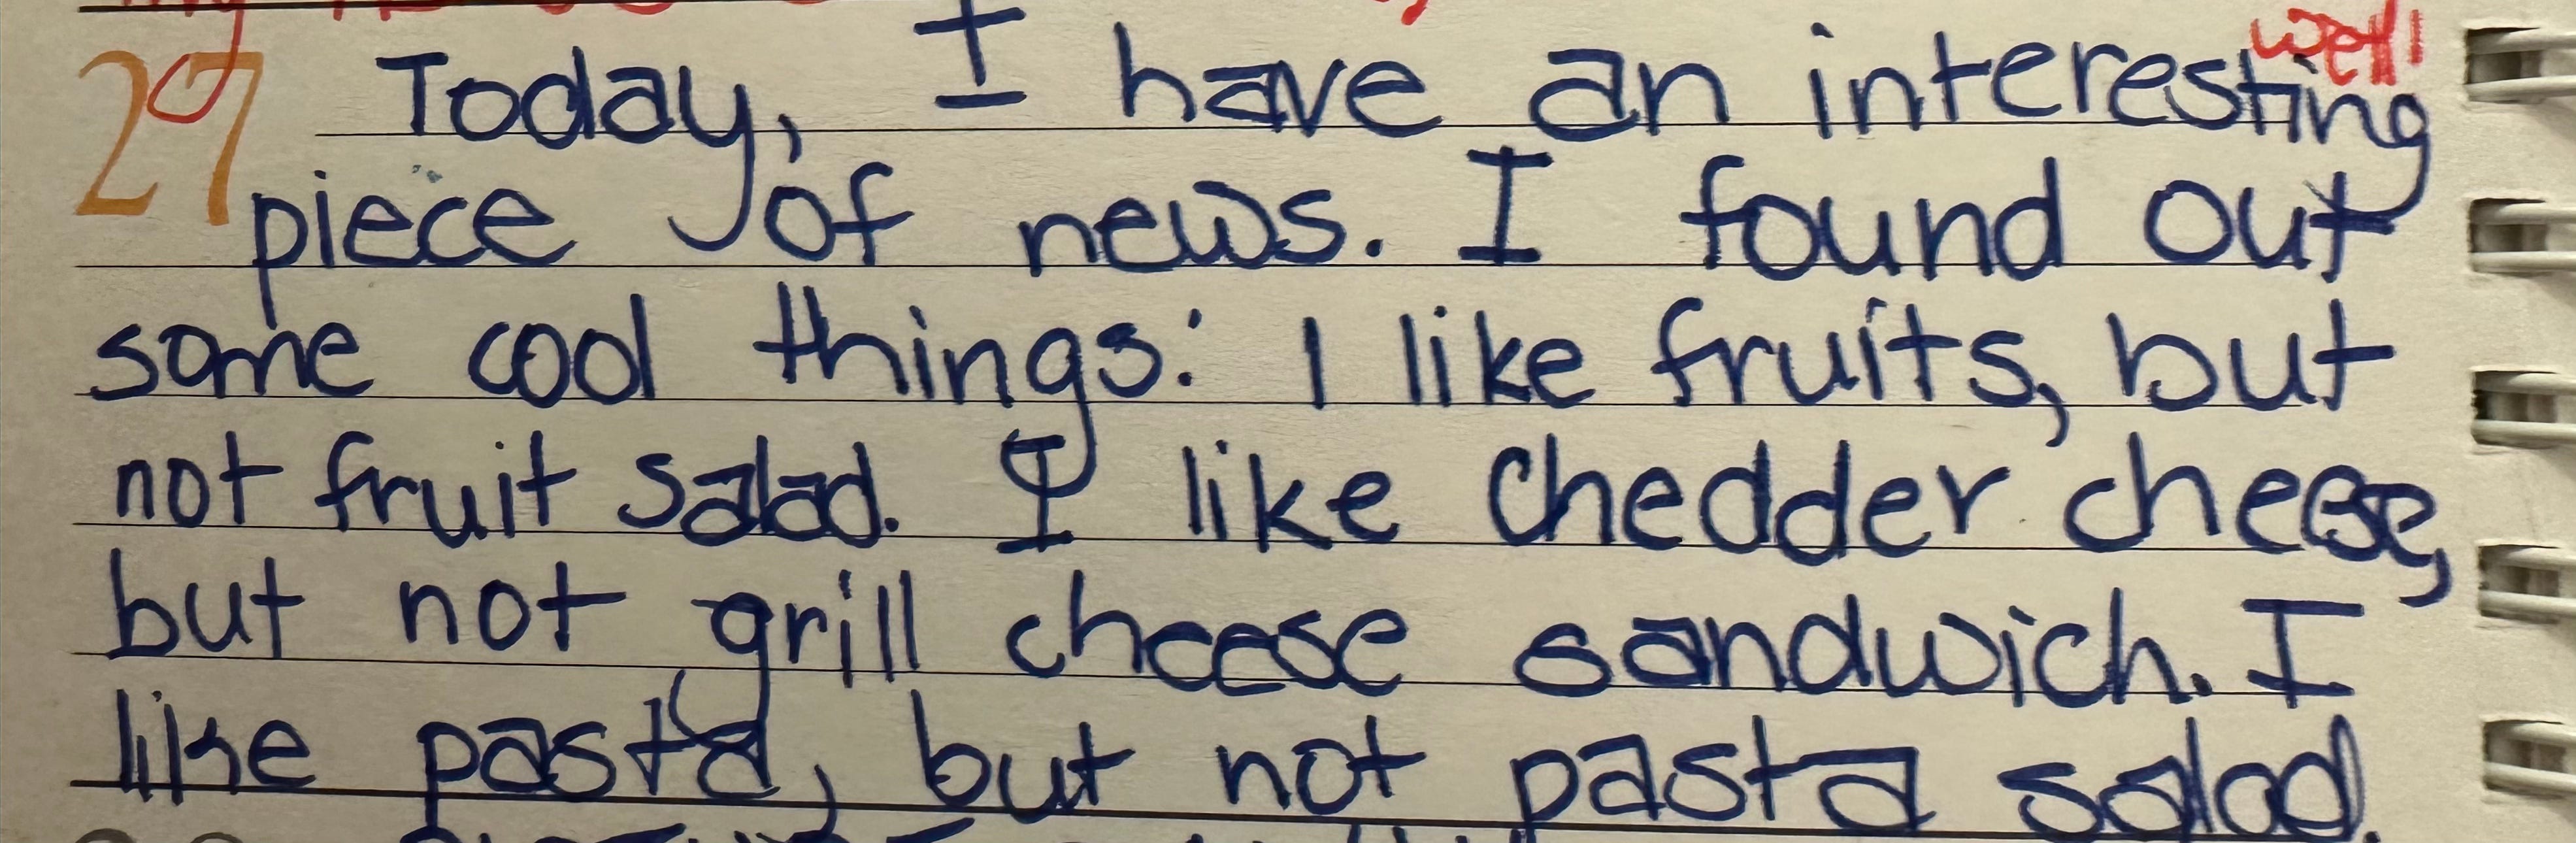 well!
27 Today, I have an interesting
piece of news. I found out
some cool things: I like fruits, but
not fruit salad. I like chedder cheese,
but not grill cheese sandwich. I
like pasta, but not pasta salad.